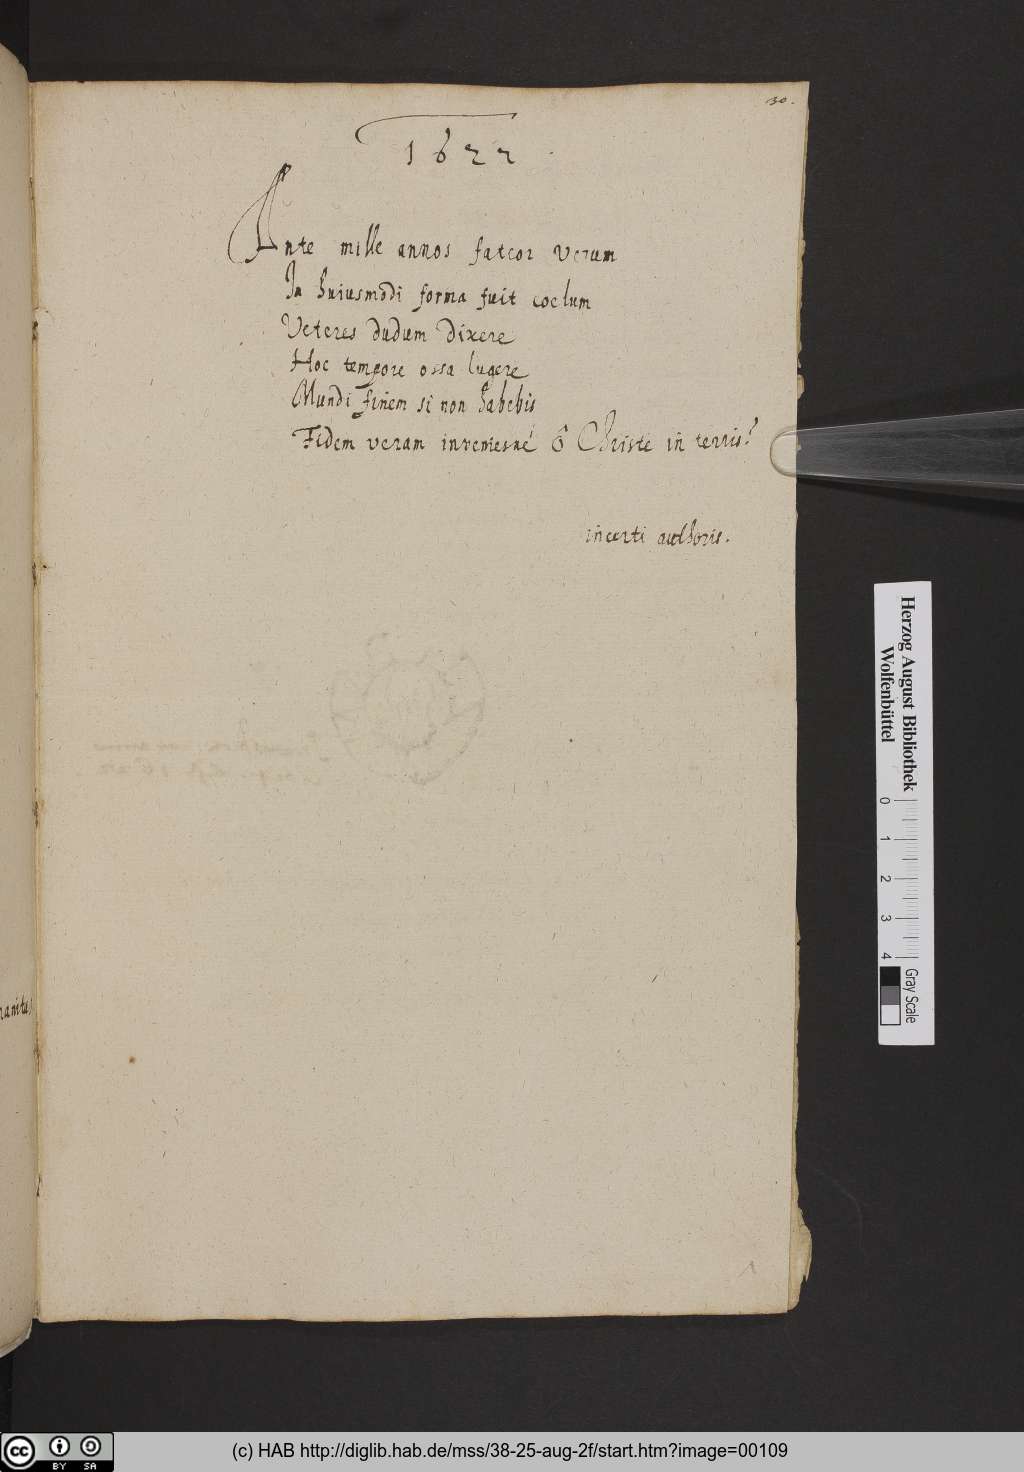 30.
1622
Ante mille annos fateor verum
In huiusmodi forma fuit coelum
Veteres dudum dixere
Hoc tempore ossa lugere
Mundi finem si non habebis
Fidem veram invenesne ô Christe in terris?
incerti authoris.
Herzog August Bibliothek
Wolfenbüttel
0 1 2 3 4
Gray Scale
BY SA
(c) HAB http://diglib.hab.de/mss/38-25-aug-2f/start.htm?image=00109